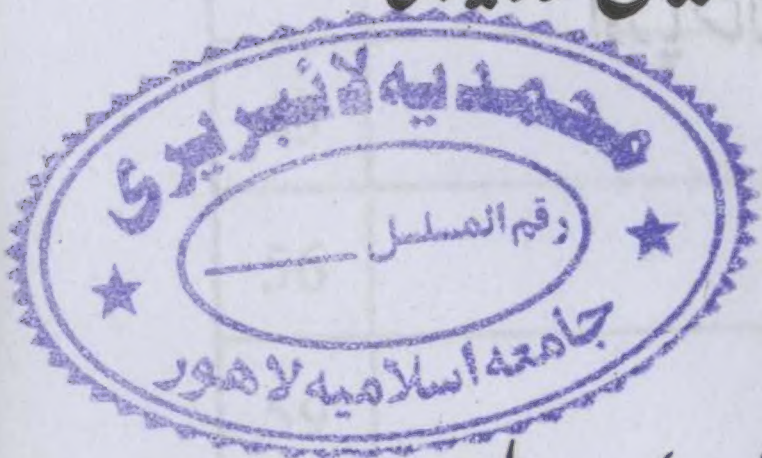 محمدیہ لائبریری
رقم المسلسل ______
جامعہ اسلامیہ لاھور